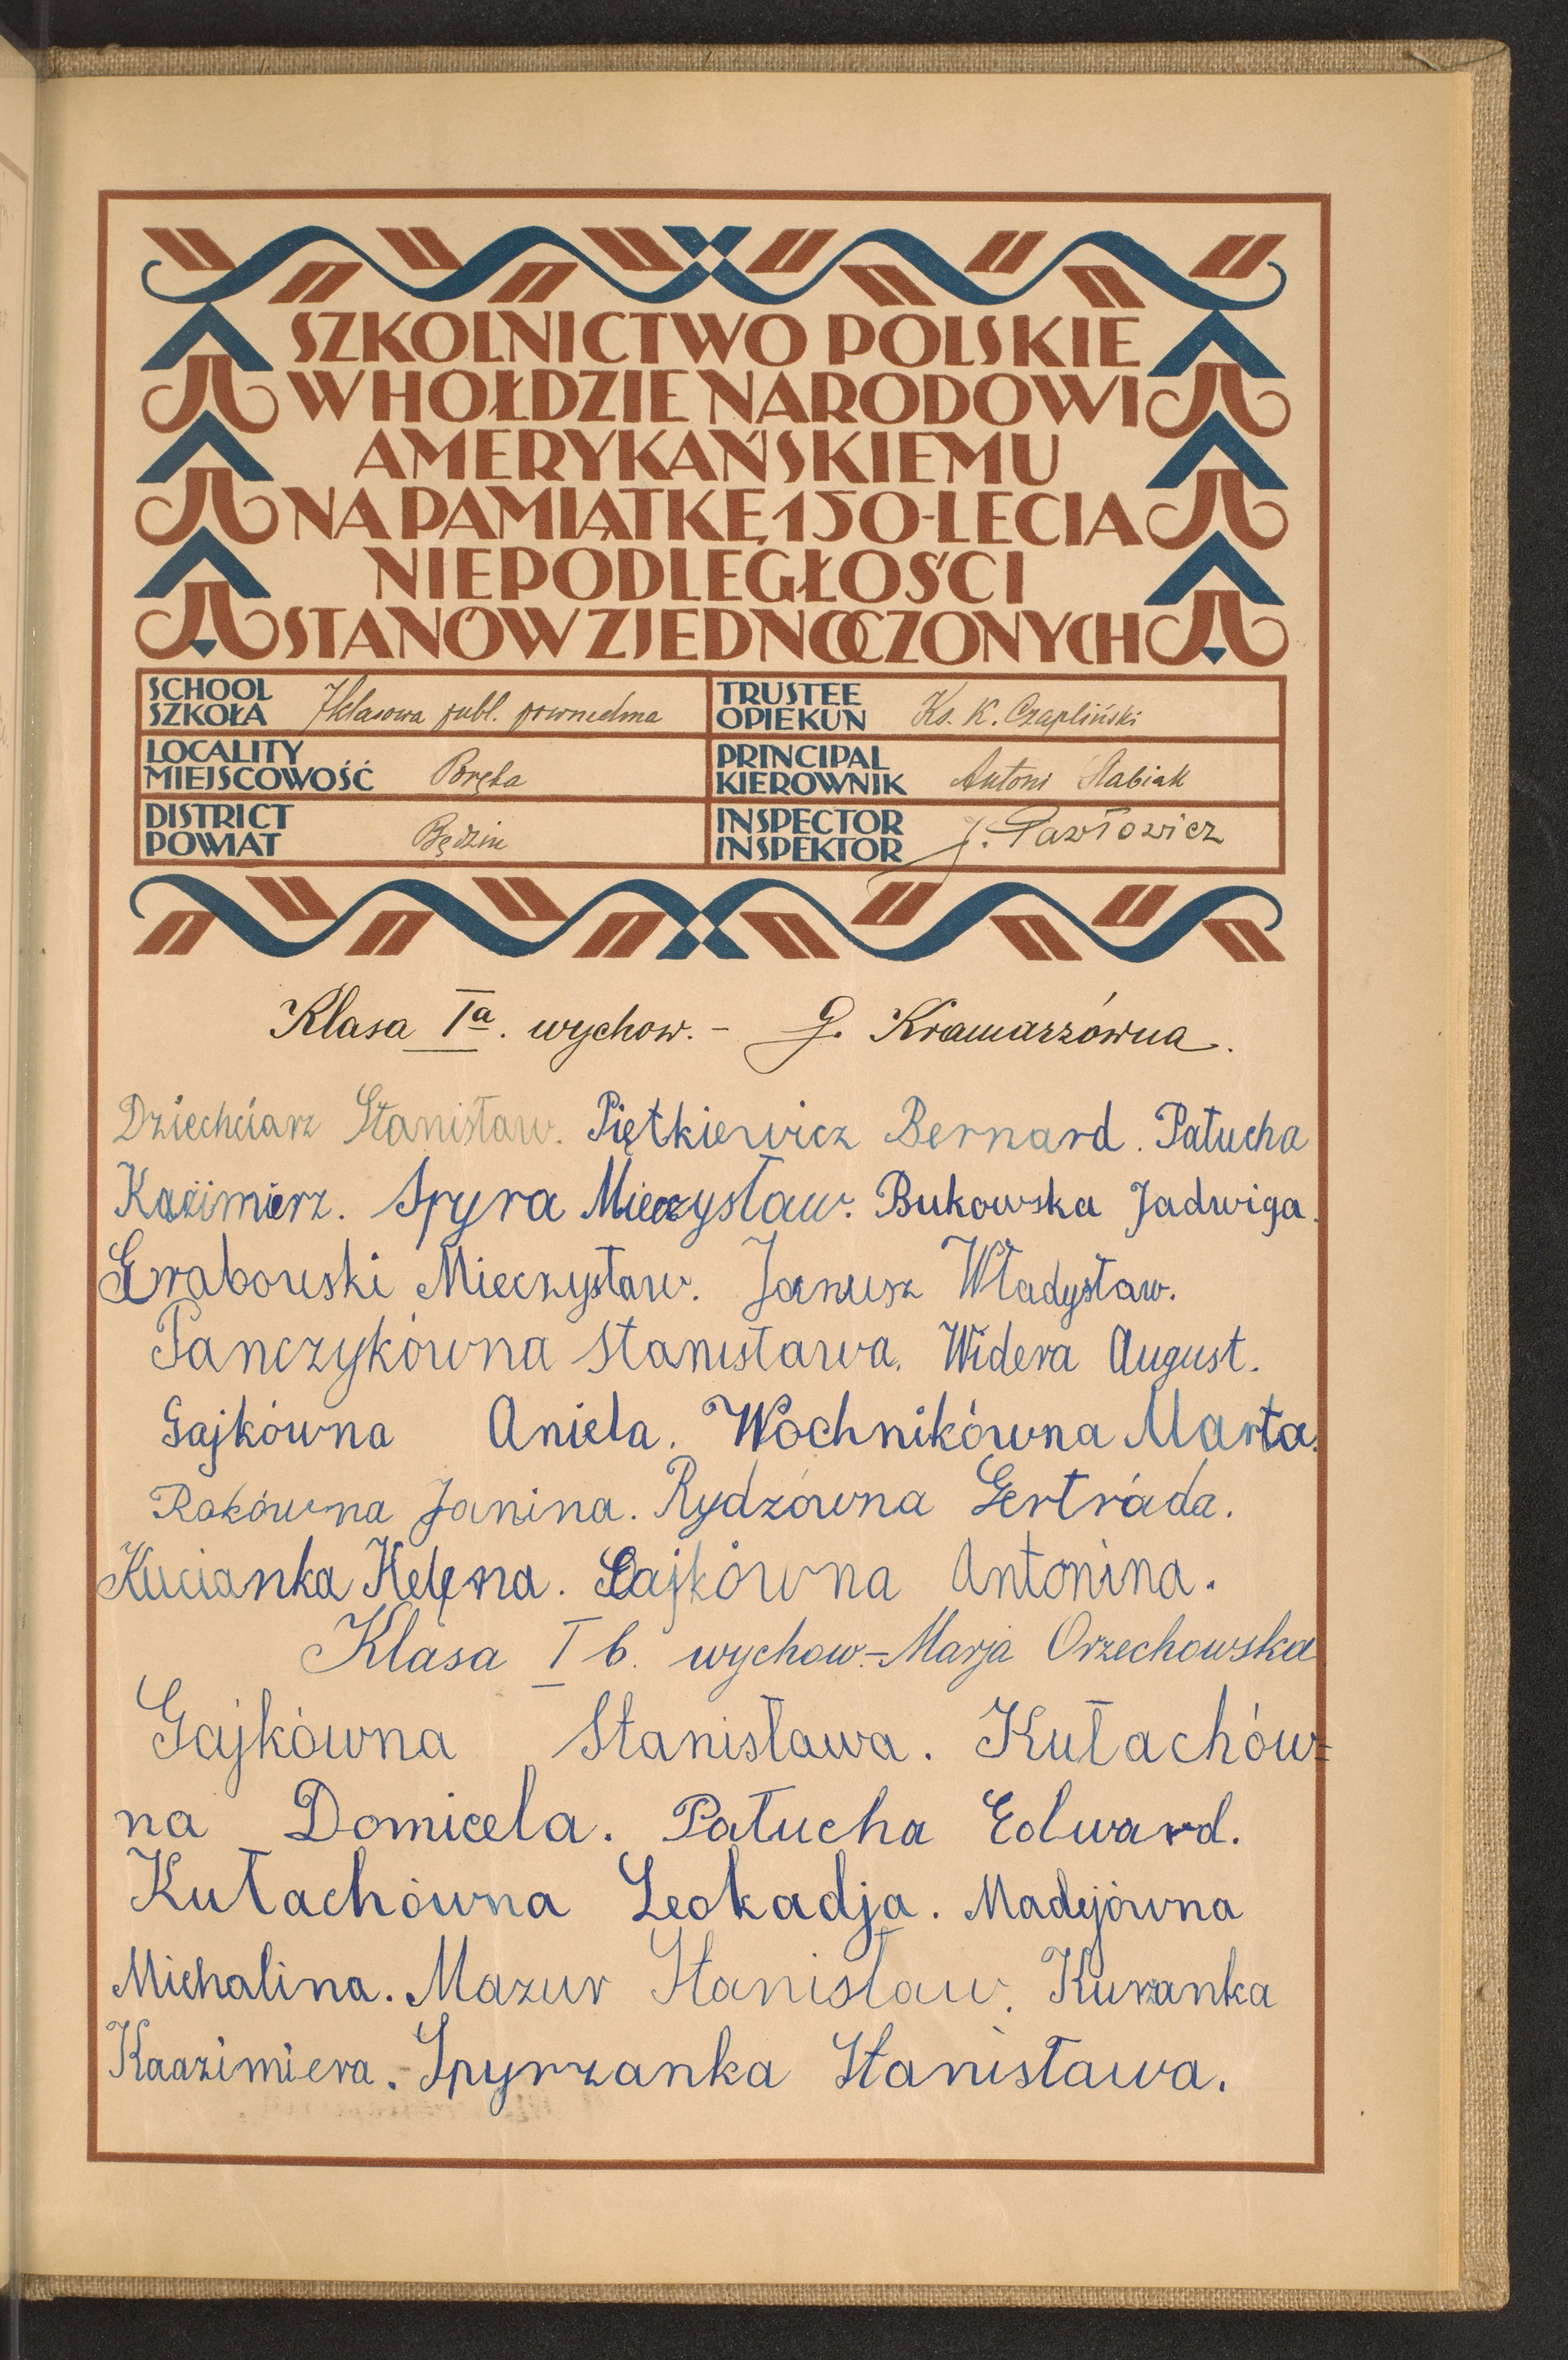 SZKOLNICTWO POLSKIE
W HOŁDZIE NARODOWI
AMERYKAŃSKIEMU
NA PAMIĄTKĘ 150-LECIA
NIEPODLEGŁOŚCI
STANÓW ZJEDNOCZONYCH
SCHOOL
SZKOŁA 7klasowa publ. powszechna
TRUSTEE
OPIEKUN Ks. K. Czapliński
LOCALITY
MIEJSCOWOŚĆ Poręba
PRINCIPAL
KIEROWNIK Antoni Stabiak
DISTRICT
POWIAT Będzin
INSPECTOR
INSPEKTOR J. Pawłowicz
Klasa Ia. wychow. - G. Kramarzówna.
Dziechciarz Stanisław. Piętkiewicz Bernard. Pałucha
Kazimierz. Spyra Mieczysław. Bukowska Jadwiga.
Grabowski Mieczysław. Janusz Władysław.
Panczykówna Stanisława. Widera August.
Gajkówna Aniela. Wochnikówna Marta.
Rakówna Janina. Rydzówna Gertráda.
Kucianka Helena. Gajkówna Antonina.
Klasa I b. wychow.- Marja Orzechowska
Gajkówna Stanisława. Kułachów=
na Domicela. Pałucha Edward.
Kułachówna Leokadja. Madejówna
Michalina. Mazur Stanisław. Kurzanka
Kaazimiera. Spyrzanka Stanisława.